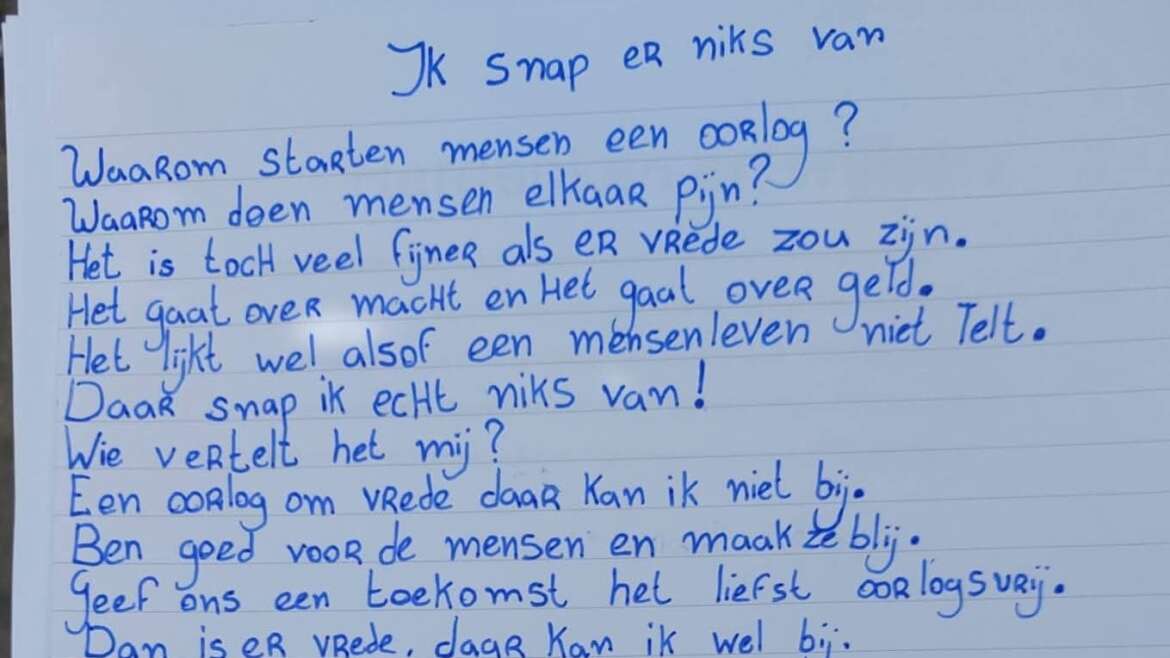 Ik snap er niks van
Waarom starten mensen een oorlog?
Waarom doen mensen elkaar pijn?
Het is toch veel fijner als er vrede zou zijn.
Het gaat over macht en Het gaat over geld.
Het lijkt wel alsof een mensenleven niet Telt.
Daar snap ik echt niks van!
Wie vertelt het mij?
Een oorlog om vrede daar kan ik niet bij.
Ben goed voor de mensen en maak ze blij.
Geef ons een toekomst het liefst oorlogsvrij.
Dan is er vrede, daar kan ik wel bij.